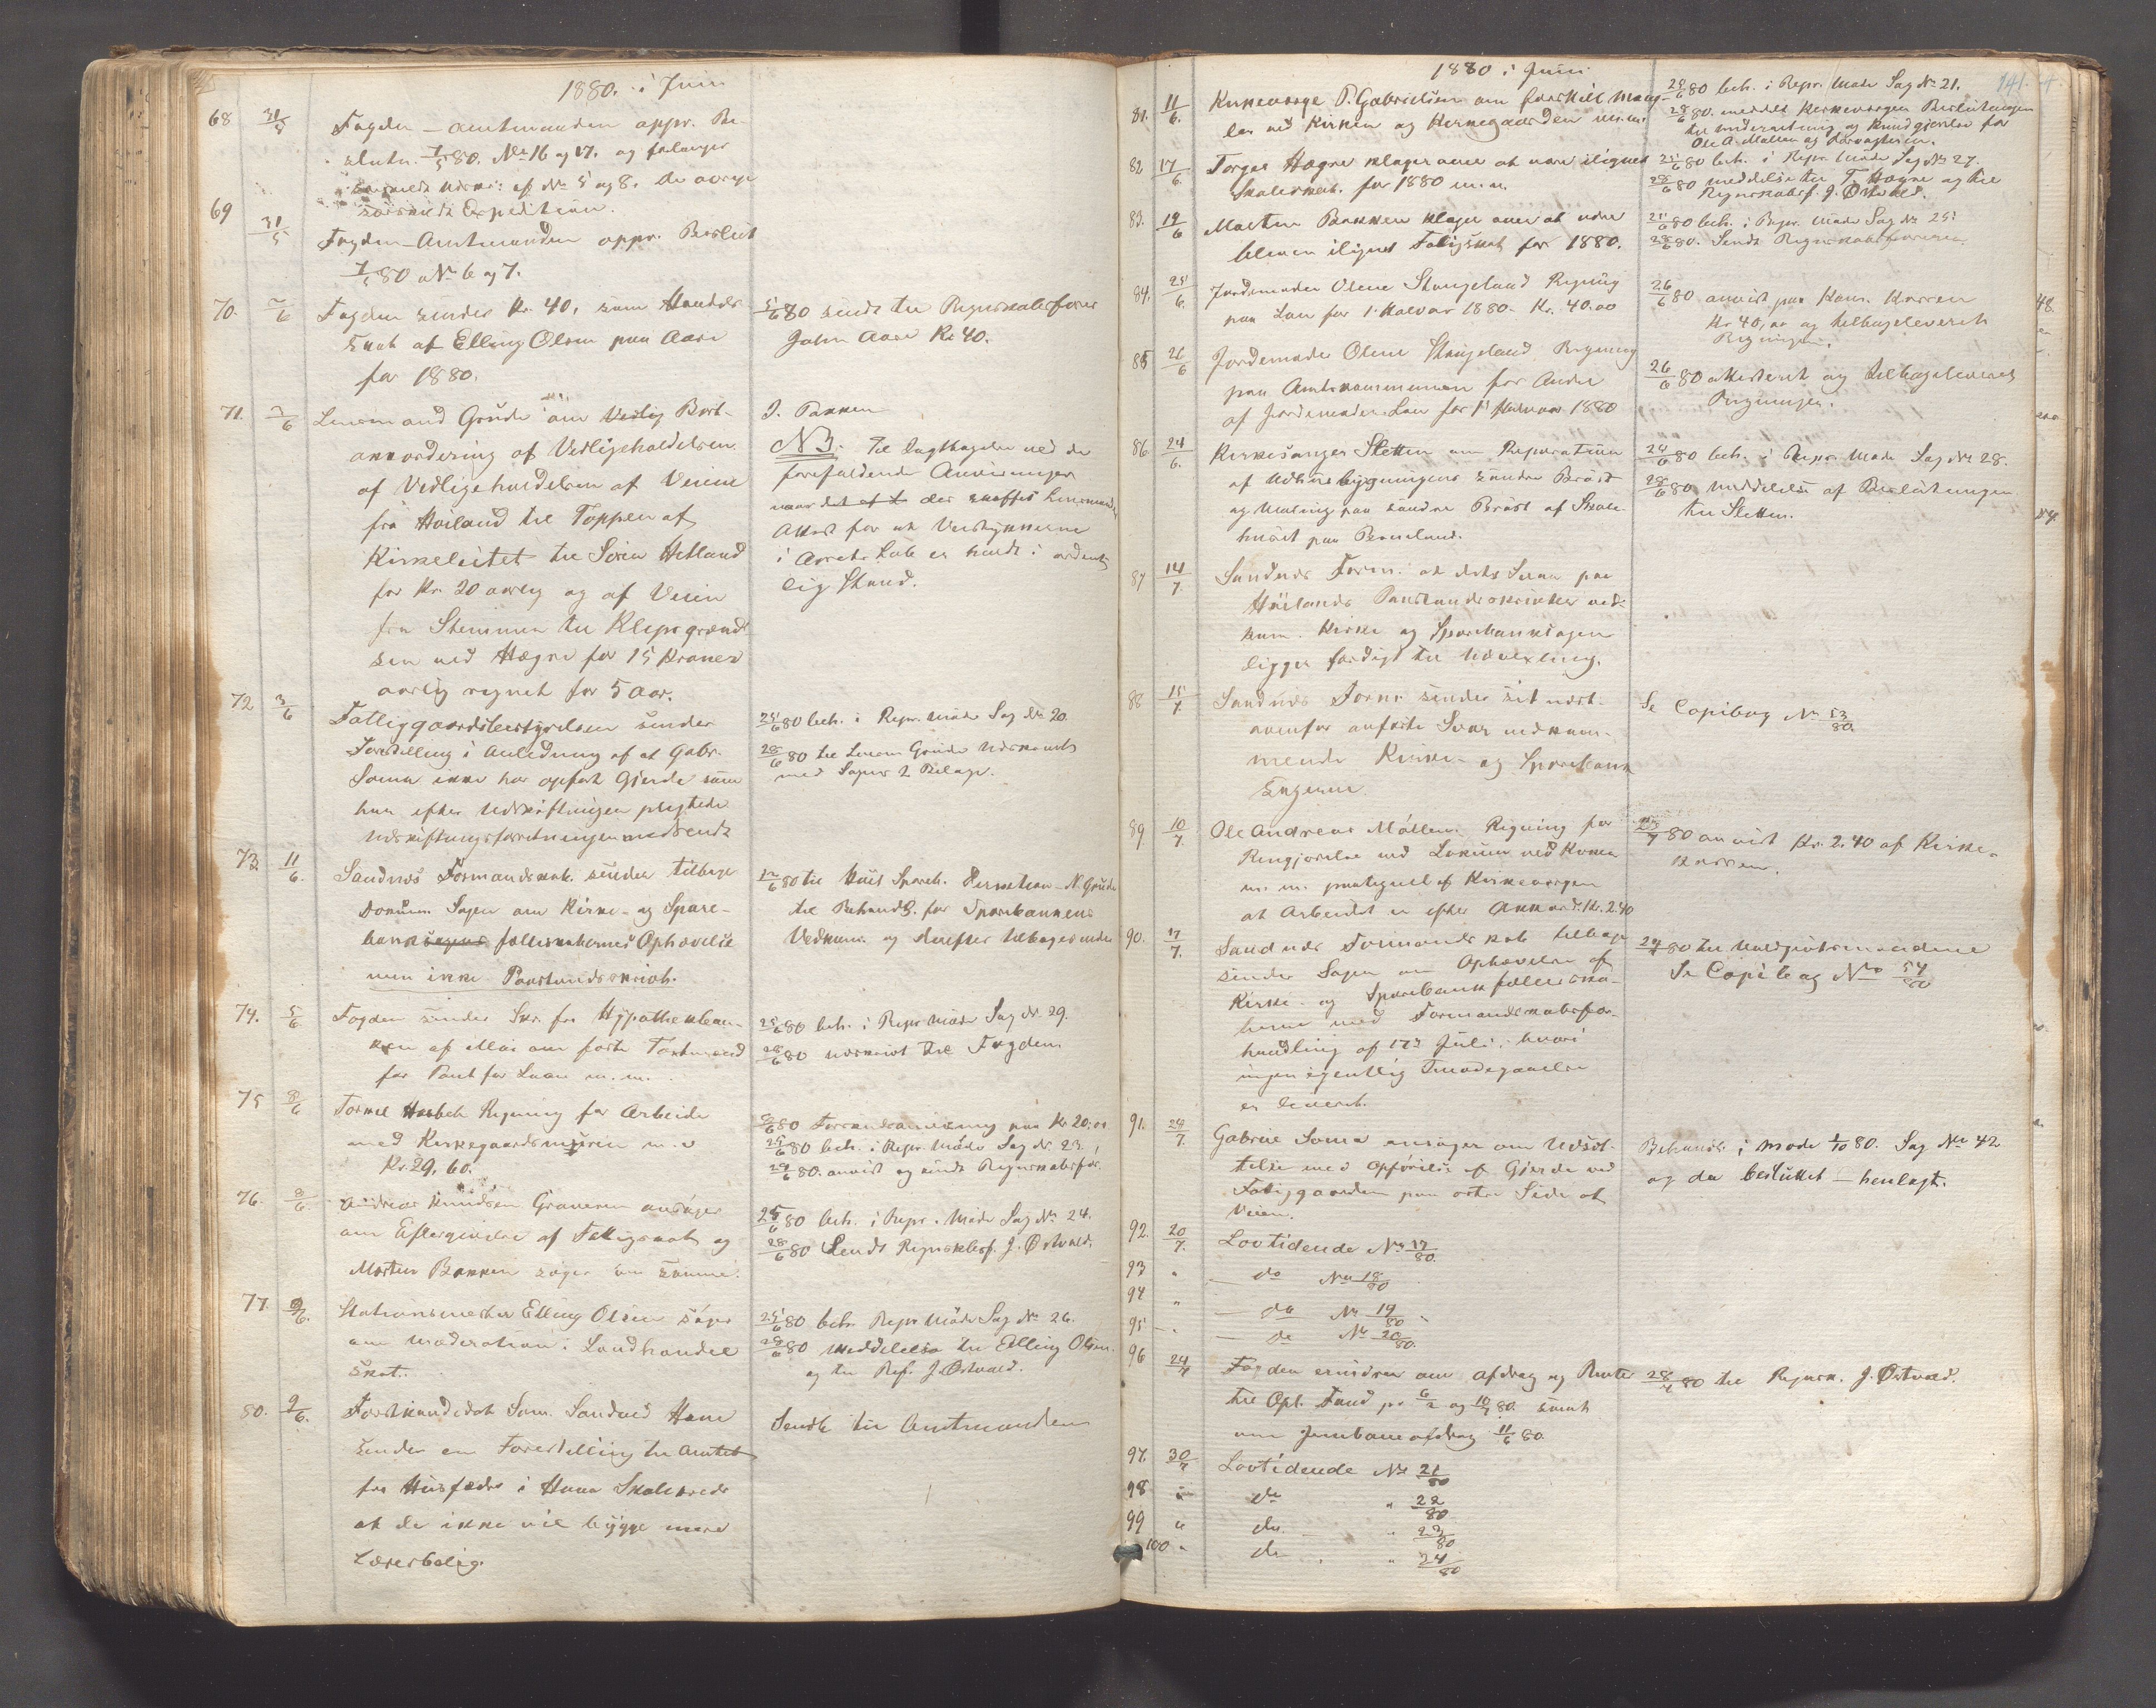 1880. i Juni
68 31/5 Fogden – Amtmanden appr. Be-
slutn. 7/5 80. No 16 og 17. og forlanger
Udskr: af No 5 og 8. de øvrige
særskildt Expedition.
69 31/5 Fogden – Amtmanden appr. Beslut
7/5 80 No 6 og 7.
70. 2/6 Fogden sender Kr. 40, som Handels
Skat af Elling Olsen paa Aase
for 1880.
5/6 80 sendt til Regnskabsfører
John Aase Kr 40.
71. 2/6 Lensmand Grude om Bort-
akkordering af Vedligeholdelsen
af Vedligeholdelsen af Veiene
fra Høiland til Toppen af
Kirkeleitet til Søren Hetland
for Kr. 20 aarlig og af Veien
fra Stemmen til Klepsgrænd
sen ved Hægre for 15 Kroner
aarlig regnet for 5 Aar.
I. Pakken
NB. Til Iagttagelse ved de
forefaldende Anvisninger
at der skaffes Lensmandens
Attest for at Veistykkerne
i Aarets Løb er holdt i ordent
lig Stand.
72 3/6 Fattiggaardsbestyrelsen sender
Forestilling i Anledning af at Gabr.
Soma ikke har opført Gjerde som
han efter Udskiftningen pligtede
Udskiftningsforretningen medsendt
25/6 80 beh. i Repr. Møde Sag No 20.
28/6 80 til Lensm Grude
med Sagens 2 Bilage.
73. 11/6. Sandnæs Formandskab. sender tilbage
Dokum. Sagen om Kirke- og Spare-
bank fællesskabernes Ophævelse
men ikke Paastandsskrivt.
12/6 80 til N. Grude
til Behandl. for Sparebankens
Vedkom. og derefter tilbagesendes
74. 5/6. Fogden sender Skr. fra Hypothekban-
ken af Mai om første Taxtmænd
for Pant for Laan m. m.
25/6 80 beh. i Repr Møde Sag No 29.
28/6 80 Udskrivt til Fogden
75 8/6 Regning for Arbeide
med Kirkegaardsmuren m. v
Kr. 29, 60.
8/6 80 Forskudsanvisning paa Kr 20.00
25/6 80 beh. i Repr. Møde Sag No 23.
29/6 80. anvist og sendt Regnskabsfør.
76. 8/6. Andreas Knudsen Graveren ansøger
om Eftergivelse af Fattigskat og
Morten Bakken søger om samme.
25/6 80 beh. i Repr. Møde Sag No 24.
28/6 80 Sendt Regnskabsf. J. Østvold.
77. 9/6. Stationsmester Elling Olsen søger
om Moderation i Landhandel
skat.
25/6 80 beh. Repr Møde Sag No 26.
28/6 80 Meddelelse til Elling Olsen.
og til Rgf. J. Østvold.
80. 9/6. Forstkandidat Sam. Sandved Hana
sender en Forestilling til Amtet
fra Huusfædre i Hana Skolekreds
at de ikke vil bygge mere
Lærerbolig.
Sendt til Amtmanden
1880 i Juni
141.
81. 11/6. Kirkeværge P. Gabrielsen om forskill. Mang-
ler ved Kirken og Kirkegaarden m.m.
25/6 80 beh. i Repr. Møde Sag No 21.
28/6 80. meddelt Kirkevergen Beslutningen
til Underretning og Kundgjørelse for
Ole A. Møllen og
82 17/6. Torger Hægre klager over at være ilignet
Skoleskat. for 1880 m.m.
25/6 80 beh. i Repr. Møde Sag No 27.
28/6 80 meddelse til T. Hægre og til
Regnskabsf. J. Østvold.
83. 19/6 Morten Bakken klager over at være
bleven ilignet Fattigskat for 1880.
25/6 80 beh. i Repr. Møde Sag No 25
28/6 80. Sendt Regnskabsføreren.
84. 25/6. Jordemoder Olene Stangeland Regning
paa Løn for 1. Halvaar 1880. Kr. 40.00
26/6 80 anvist paa Kom. Kassen
Kr 40,00 og tilbageleveret
Regningen.
85 26/6 Jordemoder Olene Stangeland Regning
paa Amtskommunen for Andel
af Jordemoder Løn for 1st Halvaar 1880
26/6 80 attesteret og tilbageleveret
Regningen.
86. 24/6. Kirkesanger Sletten om Reparation
af Udhusbygningens søndre Brøst
og Maling paa søndre Brøst af Skole-
huset paa
24/6 80 beh. i Repr. Møde Sag No 28.
28/6 80 Meddelelse af Beslutningen
til Sletten.
87 14/7. Sandnæs Form. at dets Svar paa
Høilands Paastandsskrivter ved-
kom. Kirke og Sparebanksagen
ligger færdigt til Udvexling.
88 15/7 Sandnæs Form. sender sit næst-
ovenfor anførte Svar vedkom-
mende Kirke- og Sparebank
sagerne
Se Copibog No 53/80
89 10/7. Ole Andreas Møllen Regning for
Rengjørelse ved Lokum ved Kirken
m. m. paategnet af Kirkevergen
at Arbeidet er efter Akkord. Kr. 2.40
/7 80 anvist Kr. 2.40 af Kirke-
kassen.
90. 17/7. Sandnæs Formandskab tilbage
sender Sagen om Ophævelse af
Kirke- og Sparebankfællesska-
berne med Formandskabsfor-
handling af 17de Juli, hvori
ingen egentlig Imødegaaelse
er leveret.
24/7 80 til Voldgiftsmændene
Se Copibog No 54/80
91. 24/7. Gabriel Soma ansøger om Udsæt-
telse med Opførelse af Gjerde ved
Fattiggaarden paa østre Side af
Veien.
Behandl. i Møde 1/10 80. Sag No 42
og da besluttet – henlagt.
92. 20/7. Lovtidende No 17/80.
93 " – do No 18/80
94 " – do No 19/80
95 – " – do No 20/80.
96 24/7 Fogden erindrer om Afdrag og Renter
til Opl. Fond pr 6/2 og 10/7 80. samt
om Jernbaneafdrag 11/6 80.
28/7 80 til Regnsk. J. Østvold.
97. 30/7 Lovtidende No 21/80
98 " do " 22/80
99 " do. " 23/80
100 " do " 24/80